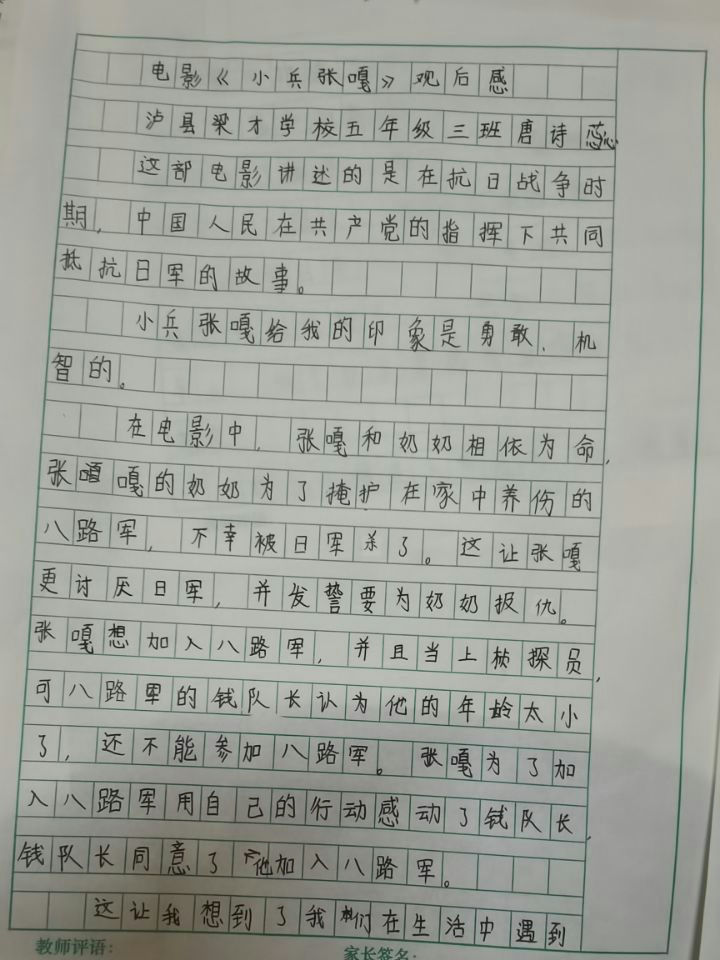 电影《小兵张嘎》观后感
泸县梁才学校五年级三班唐诗蕊
这部电影讲述的是在抗日战争时
期，中国人民在共产党的指挥下共同
抵抗日军的故事。
小兵张嘎给我的印象是勇敢、机
智的。
在电影中，张嘎和奶奶相依为命，
张嘎的奶奶为了掩护在家中养伤的
八路军，不幸被日军杀了。这让张嘎
更讨厌日军，并发誓要为奶奶报仇。
张嘎想加入八路军，并且当上桢探员，
可八路军的钱队长认为他的年龄太小
了，还不能参加八路军。张嘎为了加
入八路军用自己的行动感动了钱队长，
钱队长同意了他加入八路军。
这让我想到了我们在生活中遇到
教师评语：
家长签名：